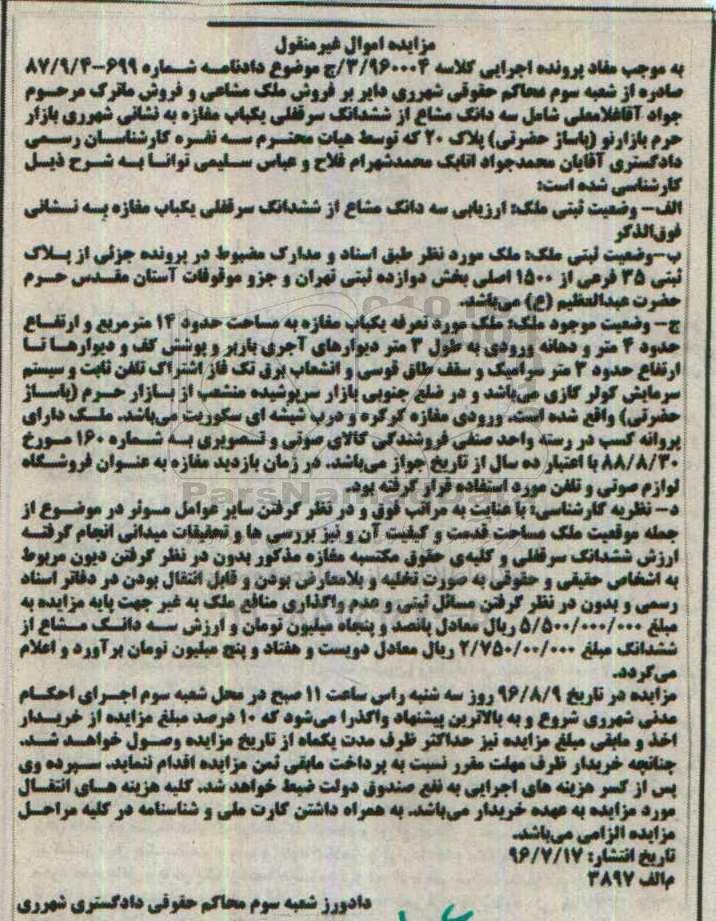 مزایده اموال غیرمنقول
به موجب مفاد پرونده اجرایی کلاسه ۳/۹۶۰۰۰۴/ج موضوع دادنامه شماره ۶۹۹-۸۷/۹/۴
صادره از شعبه سوم محاکم حقوقی شهرری دایر بر فروش ملک مشاعی و فروش ماترک مرحوم
جواد آقاغلامعلی شامل سه دانگ مشاع از ششدانگ سرقفلی یکباب مغازه به نشانی شهرری بازار
حرم بازارنو (پاساژ حضرتی) پلاک ۲۰ که توسط هیات محترم سه نفره کارشناسان رسمی
دادگستری آقایان محمدجواد اتابک محمدشهرام فلاح و عباس سلیمی توانا به شرح ذیل
کارشناسی شده است:
الف- وضعیت ثبتی ملک: ارزیابی سه دانگ مشاع از ششدانگ سرقفلی یکباب مغازه به نشانی
فوق‌الذکر
ب-وضعیت ثبتی ملک: ملک مورد نظر طبق اسناد و مدارک مضبوط در پرونده جزئی از پلاک
ثبتی ۳۵ فرعی از ۱۵۰۰ اصلی بخش دوازده ثبتی تهران و جزو موقوفات آستان مقدس حرم
حضرت عبدالعظیم (ع) می‌باشد.
ج- وضعیت موجود ملک: ملک مورد تعرفه یکباب مغازه به مساحت حدود ۱۴ مترمربع و ارتفاع
حدود ۴ متر و دهانه ورودی به طول ۳ متر دیوارهای آجری باربر و پوشش کف و دیوارها تا
ارتفاع حدود ۳ متر سرامیک و سقف طاق قوسی و انشعاب برق تک فاز اشتراک تلفن ثابت و سیستم
سرمایش کولر گازی می‌باشد و در ضلع جنوبی بازار سرپوشیده منشعب از بازار حرم (پاساژ
حضرتی) واقع شده است. ورودی مغازه کرکره و درب شیشه ای سکوریت می‌باشد. ملک دارای
پروانه کسب در رسته واحد صنفی فروشندگی کالای صوتی و تصویری به شماره ۱۶۰ مورخ
۸۸/۸/۳۰ با اعتبار ده سال از تاریخ جواز می‌باشد. در زمان بازدید مغازه به عنوان فروشگاه
لوازم صوتی و تلفن مورد استفاده قرار گرفته بود.
د- نظریه کارشناسی: با عنایت به مراتب فوق و در نظر گرفتن سایر عوامل موثر در موضوع از
جمله موقعیت ملک مساحت قدمت و کیفیت آن و نیز بررسی ها و تحقیقات میدانی انجام گرفته
ارزش ششدانگ سرقفلی و کلیه‌ی حقوق مکتسبه مغازه مذکور بدون در نظر گرفتن دیون مربوط
به اشخاص حقیقی و حقوقی به صورت تخلیه و بلامعارض بودن و قابل انتقال بودن در دفاتر اسناد
رسمی و بدون در نظر گرفتن مسائل ثبتی و عدم واگذاری منافع ملک به غیر جهت پایه مزایده به
مبلغ ۵/۵۰۰/۰۰۰/۰۰۰ ریال معادل پانصد و پنجاه میلیون تومان و ارزش سه دانگ مشاع از
ششدانگ مبلغ ۲/۷۵۰/۰۰/۰۰۰ ریال معادل دویست و هفتاد و پنج میلیون تومان برآورد و اعلام
می‌گردد.
مزایده در تاریخ ۹۶/۸/۹ روز سه شنبه راس ساعت ۱۱ صبح در محل شعبه سوم اجرای احکام
مدنی شهرری شروع و به بالاترین پیشنهاد واگذرا می‌شود که ۱۰ درصد مبلغ مزایده از خریدار
اخذ و مابقی مبلغ مزایده نیز حداکثر ظرف مدت یکماه از تاریخ مزایده وصول خواهد شد.
چنانچه خریدار ظرف مهلت مقرر نسبت به پرداخت مابقی ثمن مزایده اقدام ننماید. سپرده وی
پس از کسر هزینه های اجرایی به نفع صندوق دولت ضبط خواهد شد. کلیه هزینه های انتقال
مورد مزایده به عهده خریدار می‌باشد. به همراه داشتن کارت ملی و شناسنامه در کلیه مراحل
مزایده الزامی می‌باشد.
تاریخ انتشار: ۹۶/۷/۱۷
م‌الف ۳۸۹۷
دادورز شعبه سوم محاکم حقوقی دادگستری شهرری